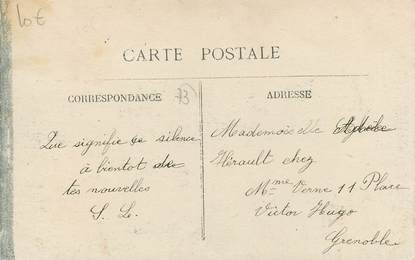 Lot
CARTE POSTALE
CORRESPONDANCE
73
ADRESSE
Que signifie ce silence
à bientot de
tes nouvelles
S. L.
Mademoiselle
Hérault chez
Mme Verne 11 Place
Victor Hugo
Grenoble